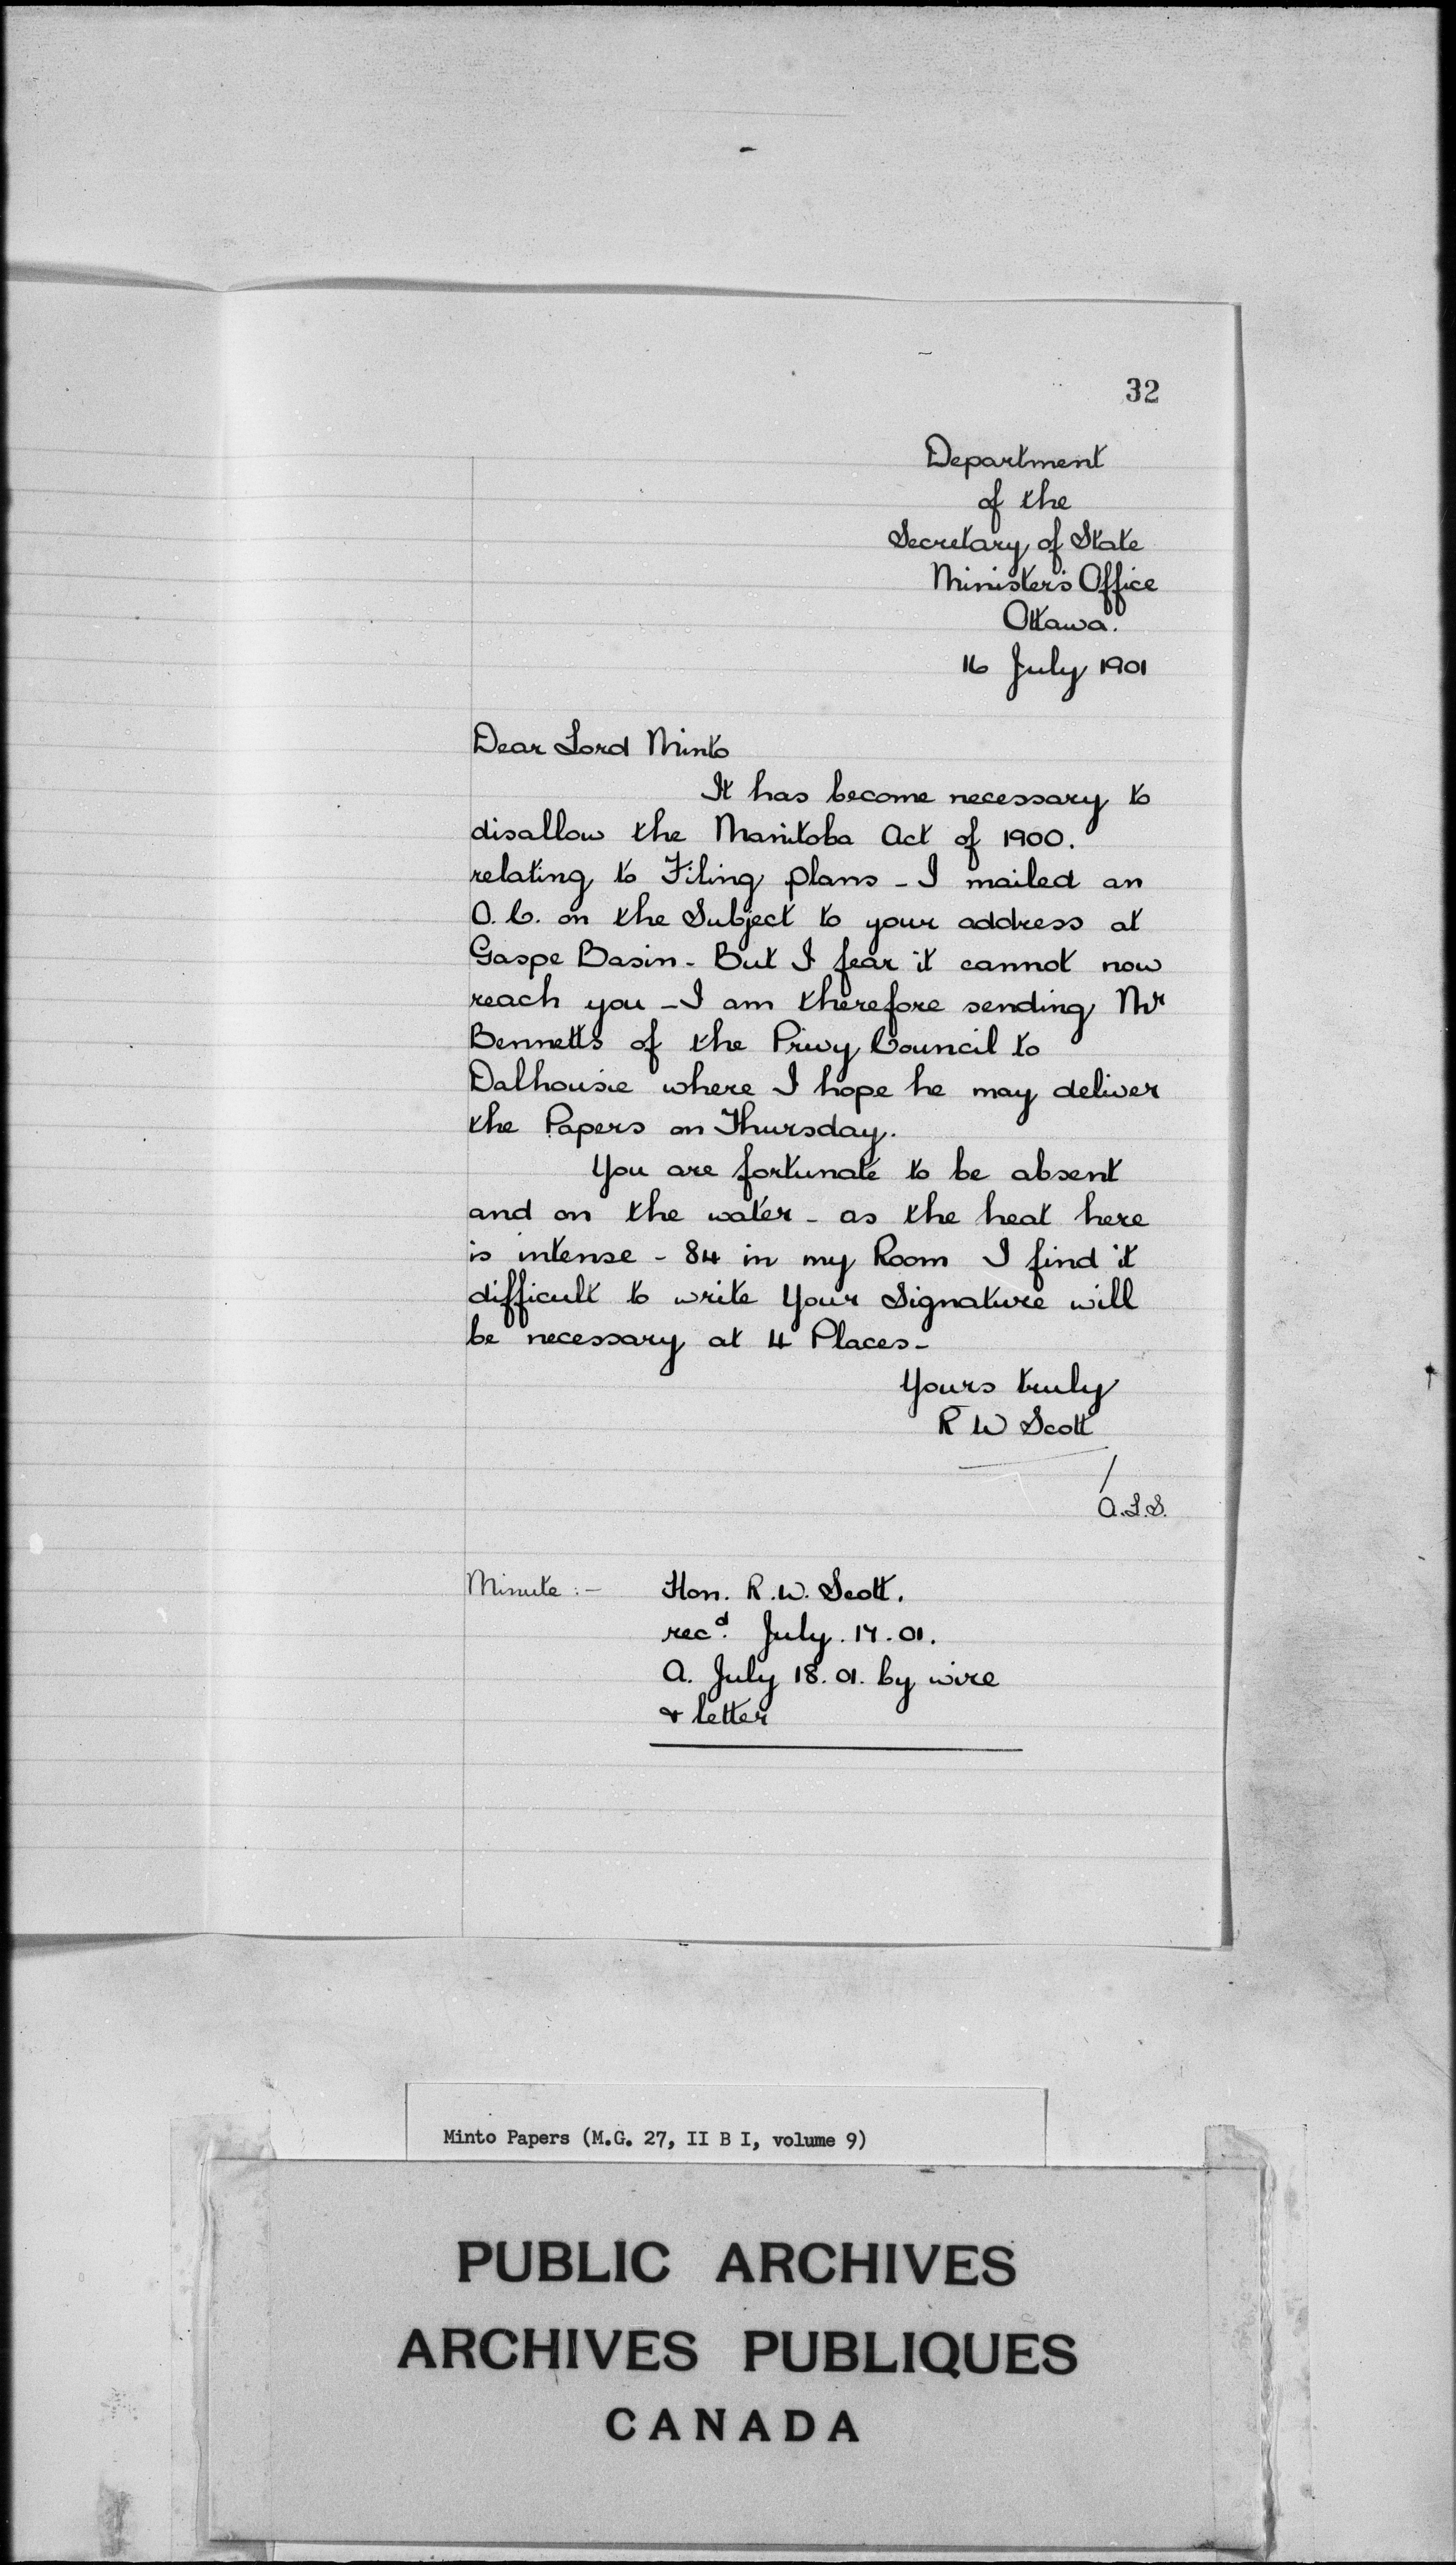 32
Department
of the
Secretary of State
Minister's Office
Ottawa.
16 July 1901
Dear Lord Minto
It has become necessary to
disallow the Manitoba Act of 1900.
relating to Filing plans - I mailed an
O.C. on the Subject to your address at
Gaspe Basin - But I fear it cannot now
reach you - I am therefore sending Mr
Bennetts of the Privy Council to
Dalhousie where I hope he may deliver
the Papers on Thursday.
You are fortunate to be absent
and on the water - as the heat here
is intense - 84 in my Room I find it
difficult to write Your Signature will
be necessary at 4 Places -
Yours truly
R W Scott
A.L.S.
Minute :- Hon. R.W. Scott.
recd. July. 17. 01.
A. July 18. 01. by wire
& letter
Minto Papers (M.G. 27, II B I, volume 9)
PUBLIC ARCHIVES
ARCHIVES PUBLIQUES
CANADA